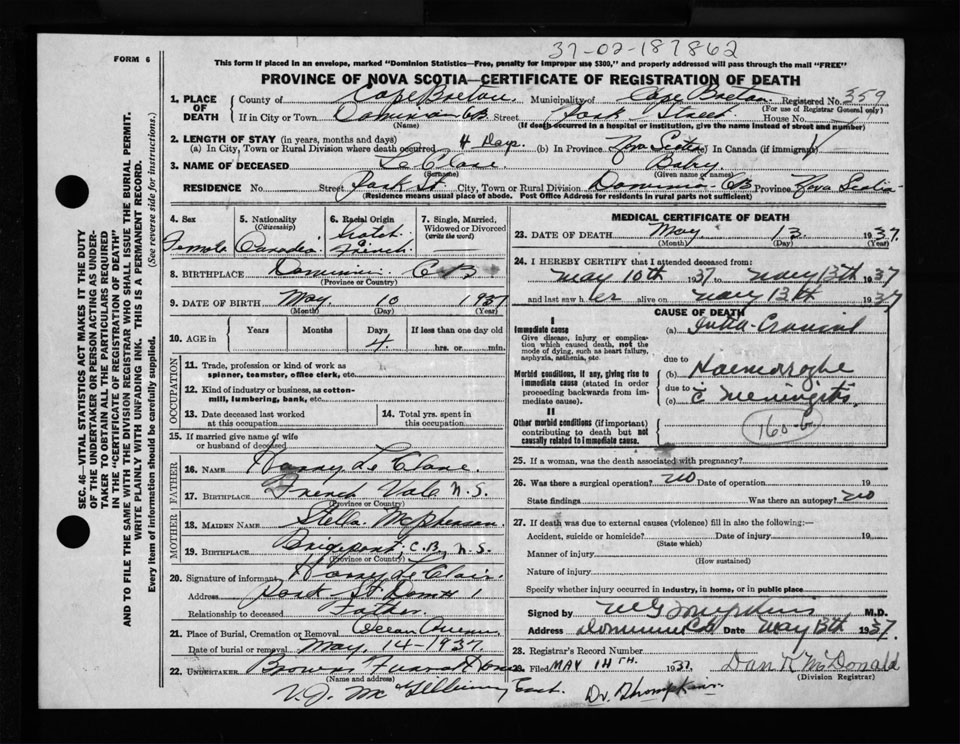 37-02-187862
FORM 6
This form if placed in an envelope, marked "Dominion Statistics—Free, penalty for improper use $300," and properly addressed will pass through the mail "FREE"
PROVINCE OF NOVA SCOTIA—CERTIFICATE OF REGISTRATION OF DEATH
1. PLACE OF DEATH
County of Cape Breton Municipality of Cape Breton Registered No. 359
(For use of Registrar General only)
If in City or Town Dominion CB Street Street House No.
(Name) (If death occurred in a hospital or institution, give the name instead of street and number)
2. LENGTH OF STAY (in years, months and days)
(a) In City, Town or Rural Division where death occurred 4 Days (b) In Province Nova Scotia In Canada (if immigrant)
3. NAME OF DECEASED Le Clare Baby
(Surname) (Given name or names)
RESIDENCE No. Street St. City, Town or Rural Division Dominion CB Province Nova Scotia
(Residence means usual place of abode. Post Office Address for residents in rural parts not sufficient)
4. Sex Female
5. Nationality (Citizenship) Canadian
6. Racial Origin Scotch & French
7. Single, Married, Widowed or Divorced (write the word)
8. BIRTHPLACE Dominion C B
(Province or Country)
9. DATE OF BIRTH May 10 1937
(Month) (Day) (Year)
10. AGE in Years Months Days 4 If less than one day old hrs. or min.
OCCUPATION
11. Trade, profession or kind of work as spinner, teamster, office clerk, etc.
12. Kind of industry or business, as cotton-mill, lumbering, bank, etc.
13. Date deceased last worked at this occupation
14. Total yrs. spent in this occupation
15. If married give name of wife or husband of deceased
FATHER
16. NAME Harry Le Clare.
17. BIRTHPLACE French Vale N.S.
(Province or Country)
MOTHER
18. MAIDEN NAME Stella McPherson
19. BIRTHPLACE Bridgeport, C.B., N.S.
(Province or Country)
20. Signature of informant Harry LeClair.
Address St.
Relationship to deceased Father.
21. Place of Burial, Cremation or Removal Ocean
Date of burial or removal May 14-1937
22. UNDERTAKER Browns Funeral Home
(Name and address)
V.J. Mc
MEDICAL CERTIFICATE OF DEATH
23. DATE OF DEATH May 13 1937.
(Month) (Day) (Year)
24. I HEREBY CERTIFY that I attended deceased from:
May 10th 1937 to May 13th 1937
and last saw her alive on May 13th 1937
CAUSE OF DEATH
I
Immediate cause
Give disease, injury or complication which caused death, not the mode of dying, such as heart failure, asphyxia, asthenia, etc.
(a) Intra-Cranial
due to
Morbid conditions, if any, giving rise to immediate cause (stated in order proceeding backwards from immediate cause).
(b) Haemorraghe
due to
(c) c̄ meningitis
II
Other morbid conditions (if important) contributing to death but not causally related to immediate cause.
160-
25. If a woman, was the death associated with pregnancy?
26. Was there a surgical operation? no Date of operation 19
State findings Was there an autopsy? no
27. If death was due to external causes (violence) fill in also the following:—
Accident, suicide or homicide? Date of injury 19
(State which)
Manner of injury
(How sustained)
Nature of injury
Specify whether injury occurred in industry, in home, or in public place
Signed by M G Tompkins M.D.
Address Dominion CB Date May 13th 1937.
28. Registrar's Record Number
29. Filed MAY 14TH. 1937. Dan R McDonald
(Division Registrar)
Dr. Thompkins
SEC. 46—VITAL STATISTICS ACT MAKES IT THE DUTY OF THE UNDERTAKER OR PERSON ACTING AS UNDERTAKER TO OBTAIN ALL THE PARTICULARS REQUIRED IN THE "CERTIFICATE OF REGISTRATION OF DEATH" AND TO FILE THE SAME WITH THE DIVISION REGISTRAR WHO SHALL ISSUE THE BURIAL PERMIT.
WRITE PLAINLY WITH UNFADING INK. THIS IS A PERMANENT RECORD.
Every item of information should be carefully supplied. (See reverse side for instructions.)